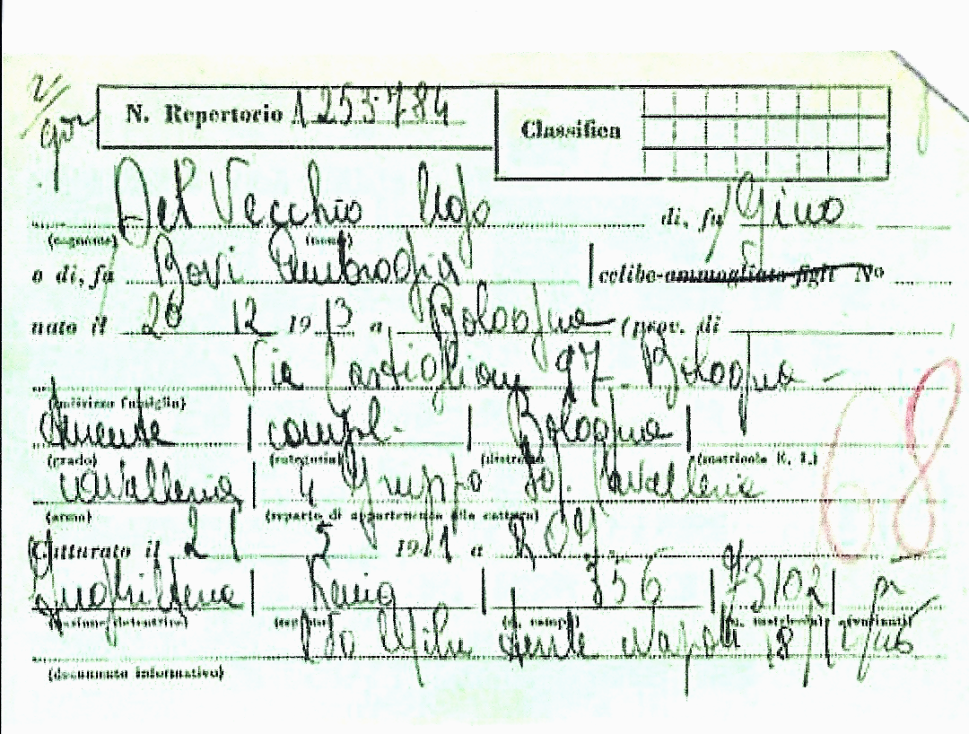 2/
N. Repertorio 1253784 Classifica
Del Vecchio Ugo di, fu Gino
(cognome) (nome)
o di, fu Bovi Ambrogia celibe-ammogliato-figli No
nato il 26 12 1913 a Bologna (prov. di
Via Castiglione 97 Bologna -
(indirizzo famiglia)
compl. Bologna
(grado) (categoria) (distretto) (matricola R. E.)
cavalleria 4 Gruppo Sq. Cavalleria
(arma) (reparto di appartenenza alla cattura)
Catturato il 21 5 1941 a
Inghilterra Kenia 356
(nazione detentrice) (n. campo) (n. matricola) (varianti)
Napoli
(documento informativo)
68